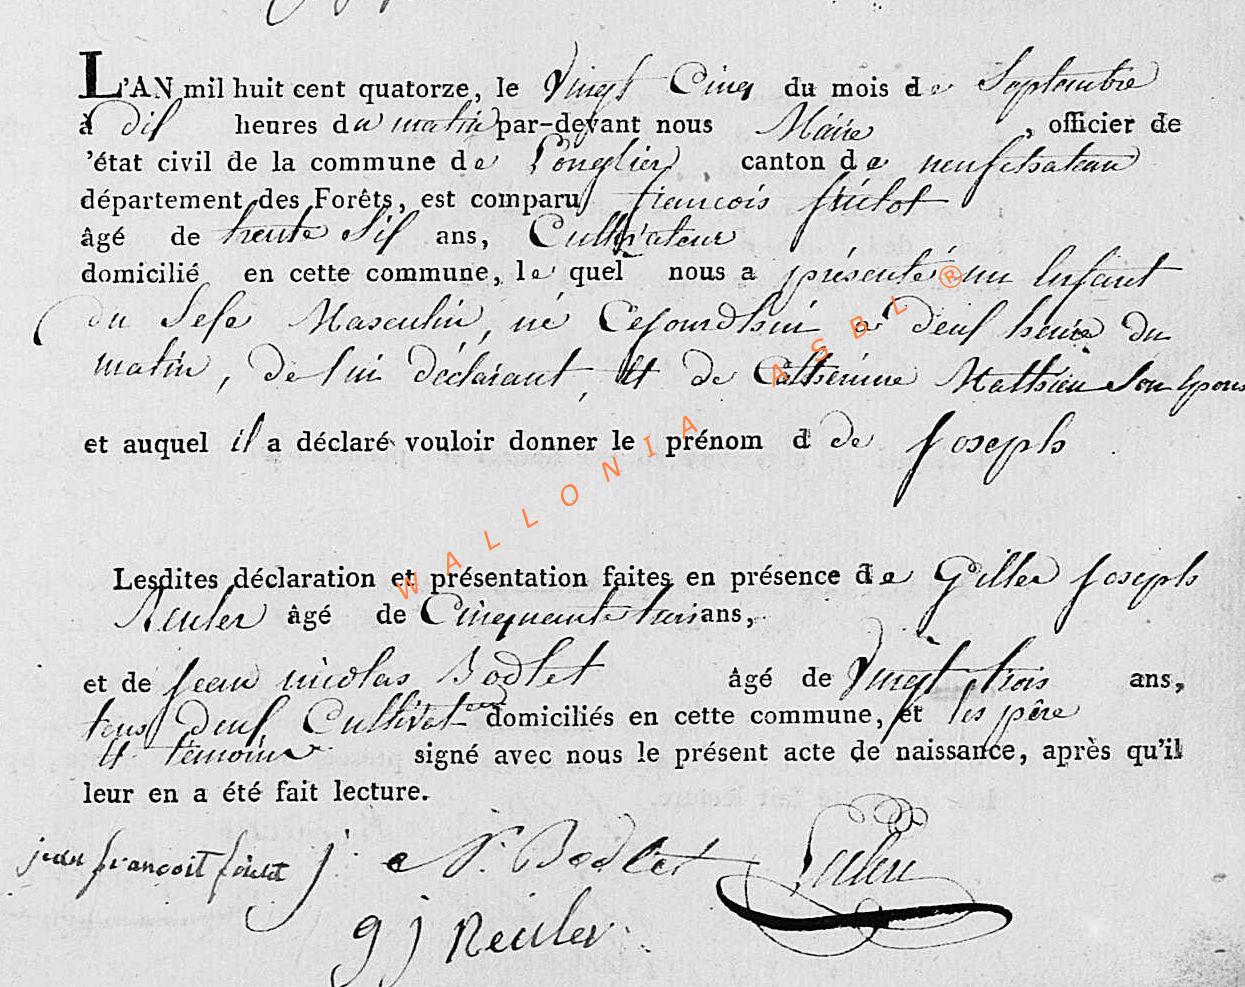 L'AN mil huit cent quatorze, le Vingt Cinq du mois de Septembre
à dix heures du matin par-devant nous Maire , officier de
'état civil de la commune de Longlier canton de neufchateau
département des Forêts, est comparu françois
âgé de trente Six ans, Cultivateur
domicilié en cette commune, le quel nous a présenté un Enfant
du Sexe Masculin, né Cejourdhui a deux heure du
matin, de lui déclarant et de Catherinne Mathieu Son Epouse
et auquel il a déclaré vouloir donner le prénom d de Joseph
Lesdites déclaration et présentation faites en présence de Gilles Joseph
Reuler âgé de Cinquante trois ans,
et de Jean nicolas Bodlet âgé de Vingt trois ans,
tous deux Cultivateur domiciliés en cette commune, et les père
et temoins signé avec nous le présent acte de naissance, après qu'il
leur en a été fait lecture.
jean françoit j. N. Bodlet
g j Reuler
WALLONIA ASBL ®